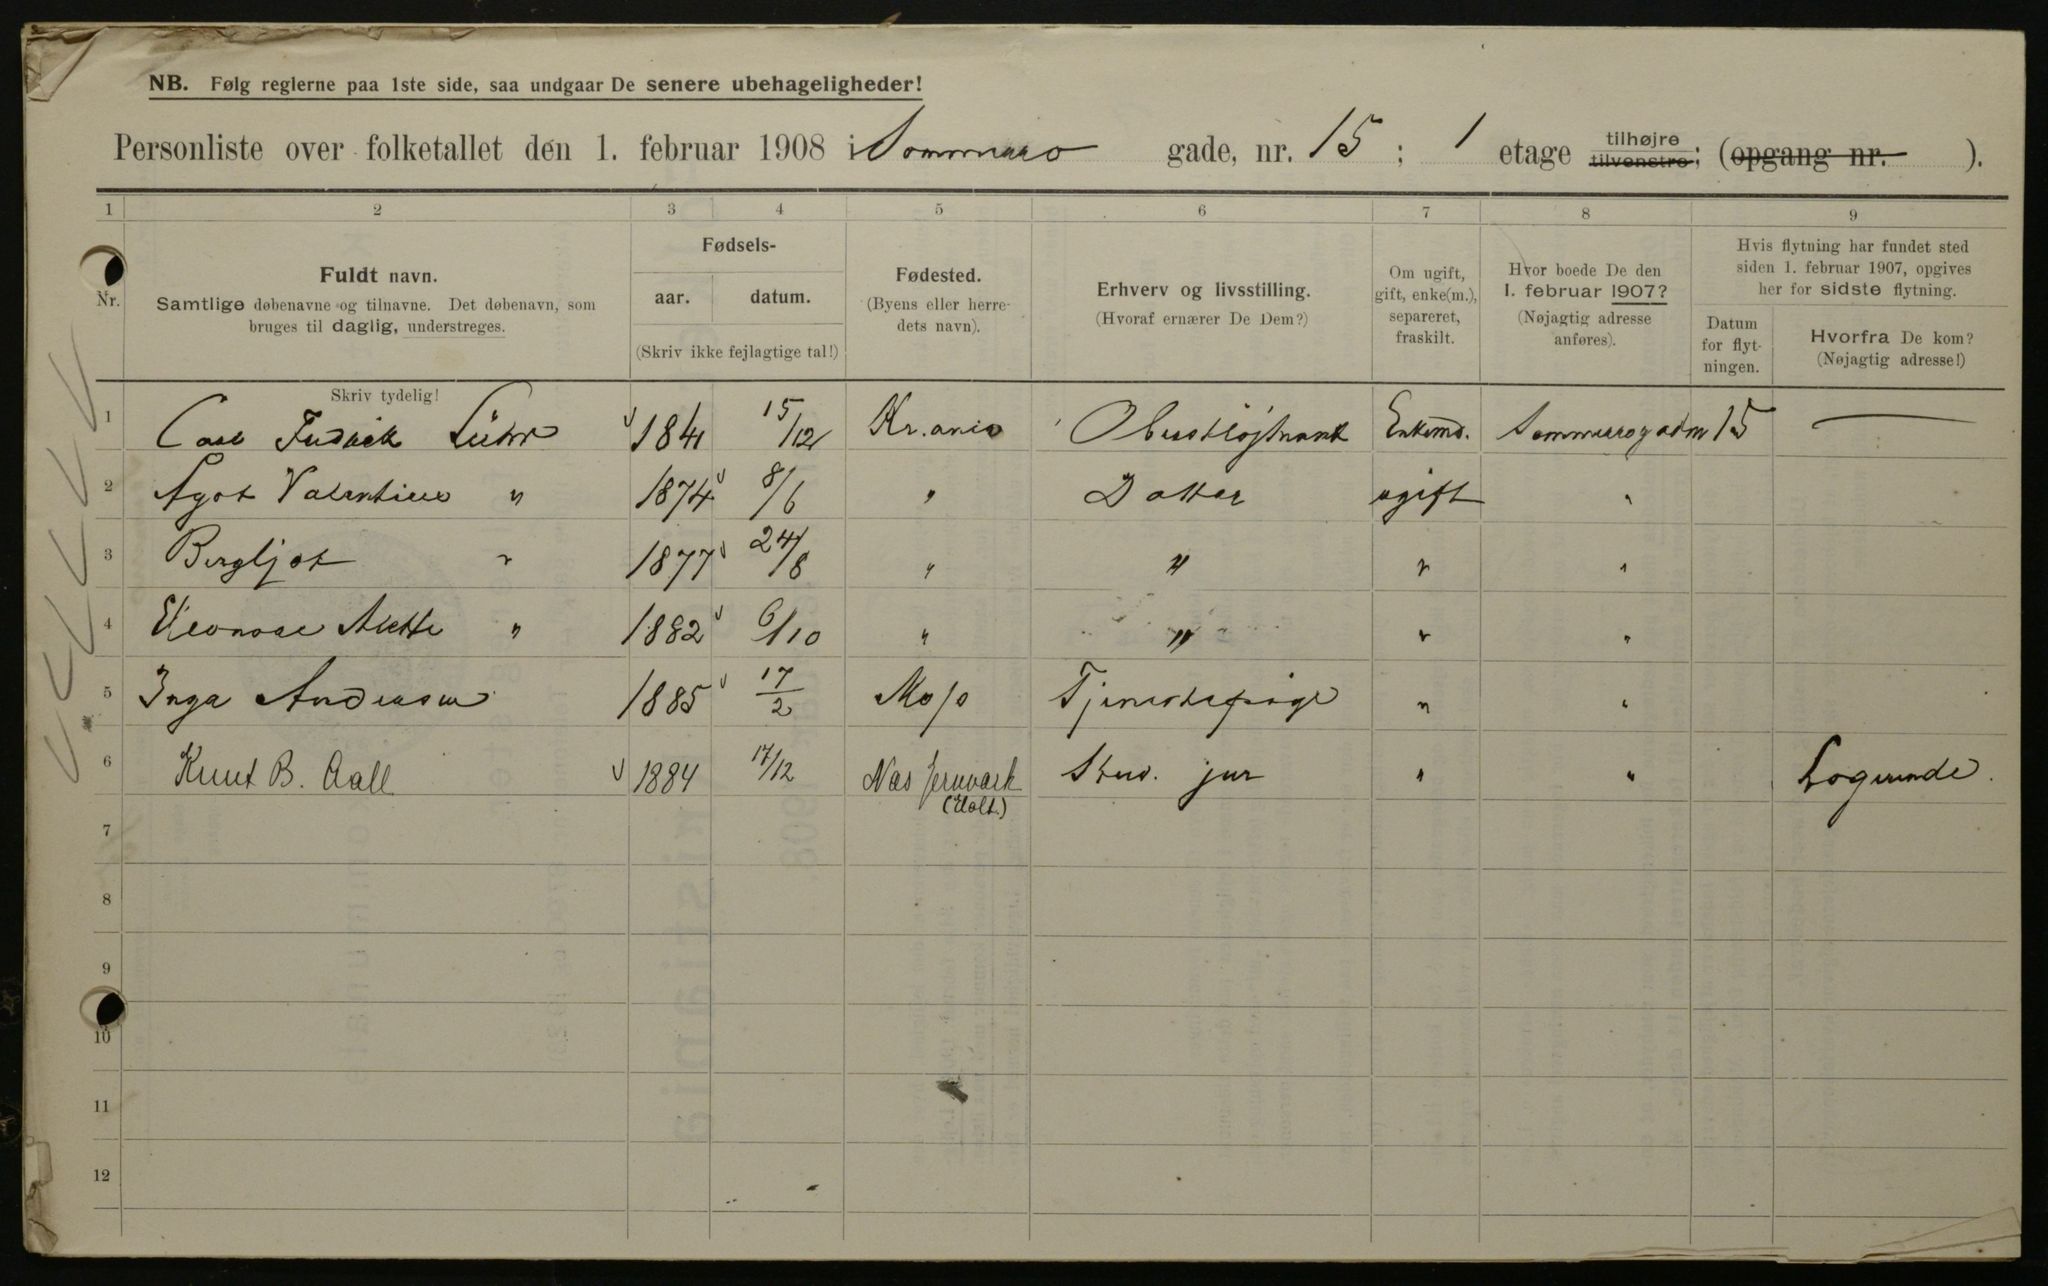 NB. Følg reglerne paa 1ste side, saa undgaar De senere ubehageligheder!
Personliste over folketallet den 1. februar 1908 i Sommerro gade, nr. 15 ; 1 etage tilhøjre tilvenstre; (opgang nr. ).
1 2 3 4 5 6 7 8 9
Nr. Fuldt navn. Samtlige døbenavne og tilnavne. Det døbenavn, som bruges til daglig, understreges.
Fødsels- aar. datum. (Skriv ikke fejlagtige tal!)
Fødested. (Byens eller herredets navn).
Erhverv og livsstilling. (Hvoraf ernærer De Dem?)
Om ugift, gift, enke(m.), separeret, fraskilt.
Hvor boede De den 1. februar 1907? (Nøjagtig adresse anføres).
Hvis flytning har fundet sted siden 1. februar 1907, opgives her for sidste flytning.
Datum for flytningen. Hvorfra De kom? (Nøjagtig adresse!)
Skriv tydelig!
1 Carl Fredrik Lühr 1841 15/12 Kr.ania Oberstløjtnant Enkemd. Sommerrogaden 15 —
2 Agot Valentine " 1874 8/6 " Datter ugift "
3 Bergljot " 1877 24/8 " " " "
4 Eleonore Alette " 1882 6/10 " " " "
5 Inga Andersen 1885 17/2 Tjenestepige " "
6 Knut B. Aall 1884 17/12 Næs Jernværk (Holt.) Stud. jur " " Logerende.
7
8
9
10
11
12